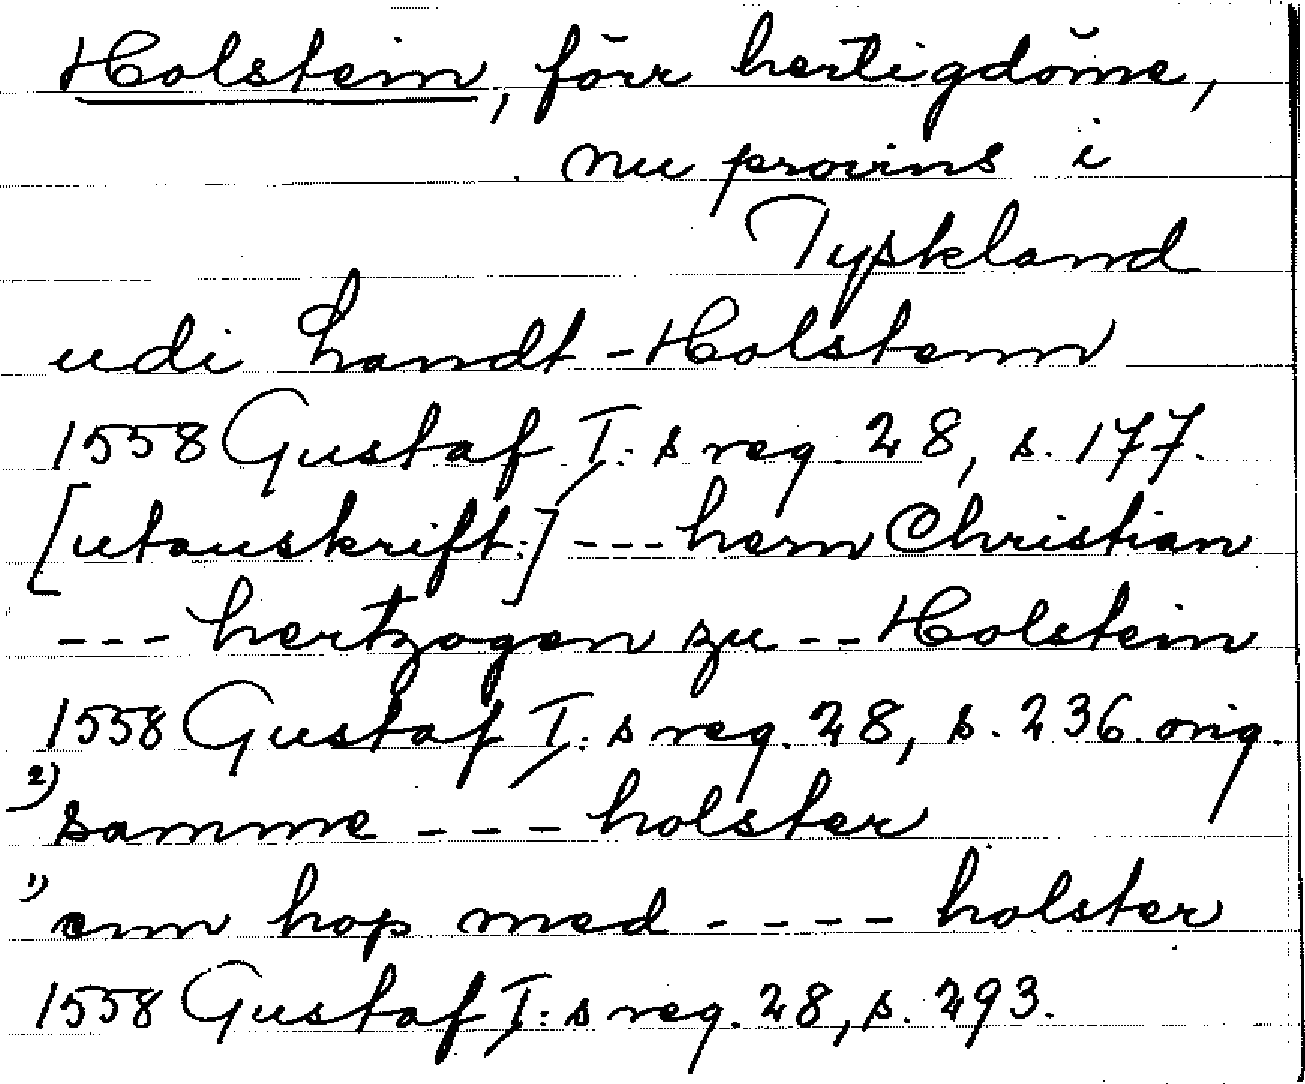 Holstein, förr hertigdöme,
nu provins i
Tyskland
udi handt-Holstenn
1558 Gustaf I:s reg. 28, s. 177.
[utanskrift:] --- hern Christian
--- hertzogen zu -- Holstein
1558 Gustaf I:s reg. 28, s. 236. orig.
2) samme --- holster
1) enn hop med ---- holster
1558 Gustaf I:s reg. 28, s. 293.